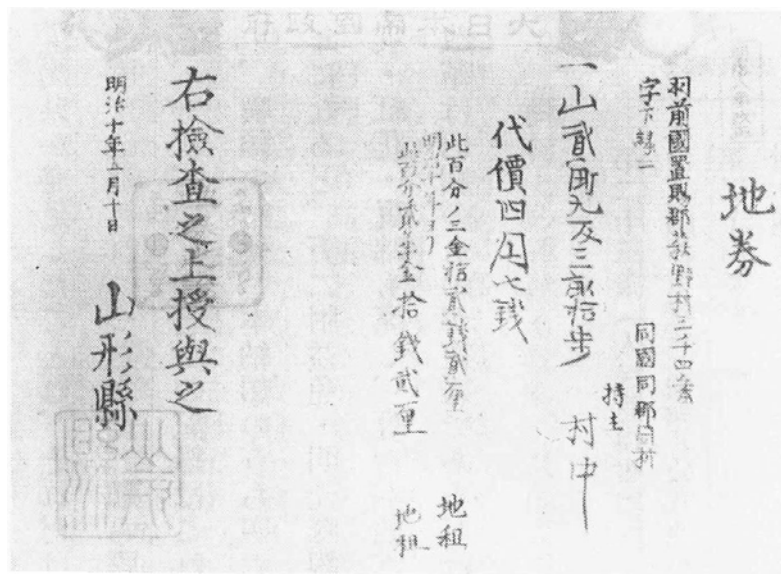 大日本帝國政府
地券
羽前國置賜郡萩野村二千四番
字下 一
同國同郡同村
一山貳町九反三畝拾歩
持主
村中
代價四円七錢
此百分ノ三金拾貳錢貳厘 地租
明治十年ヨリ
此百分貳半金拾錢貳厘 地租
右檢査之上授與之
明治十年 月十日
山形縣